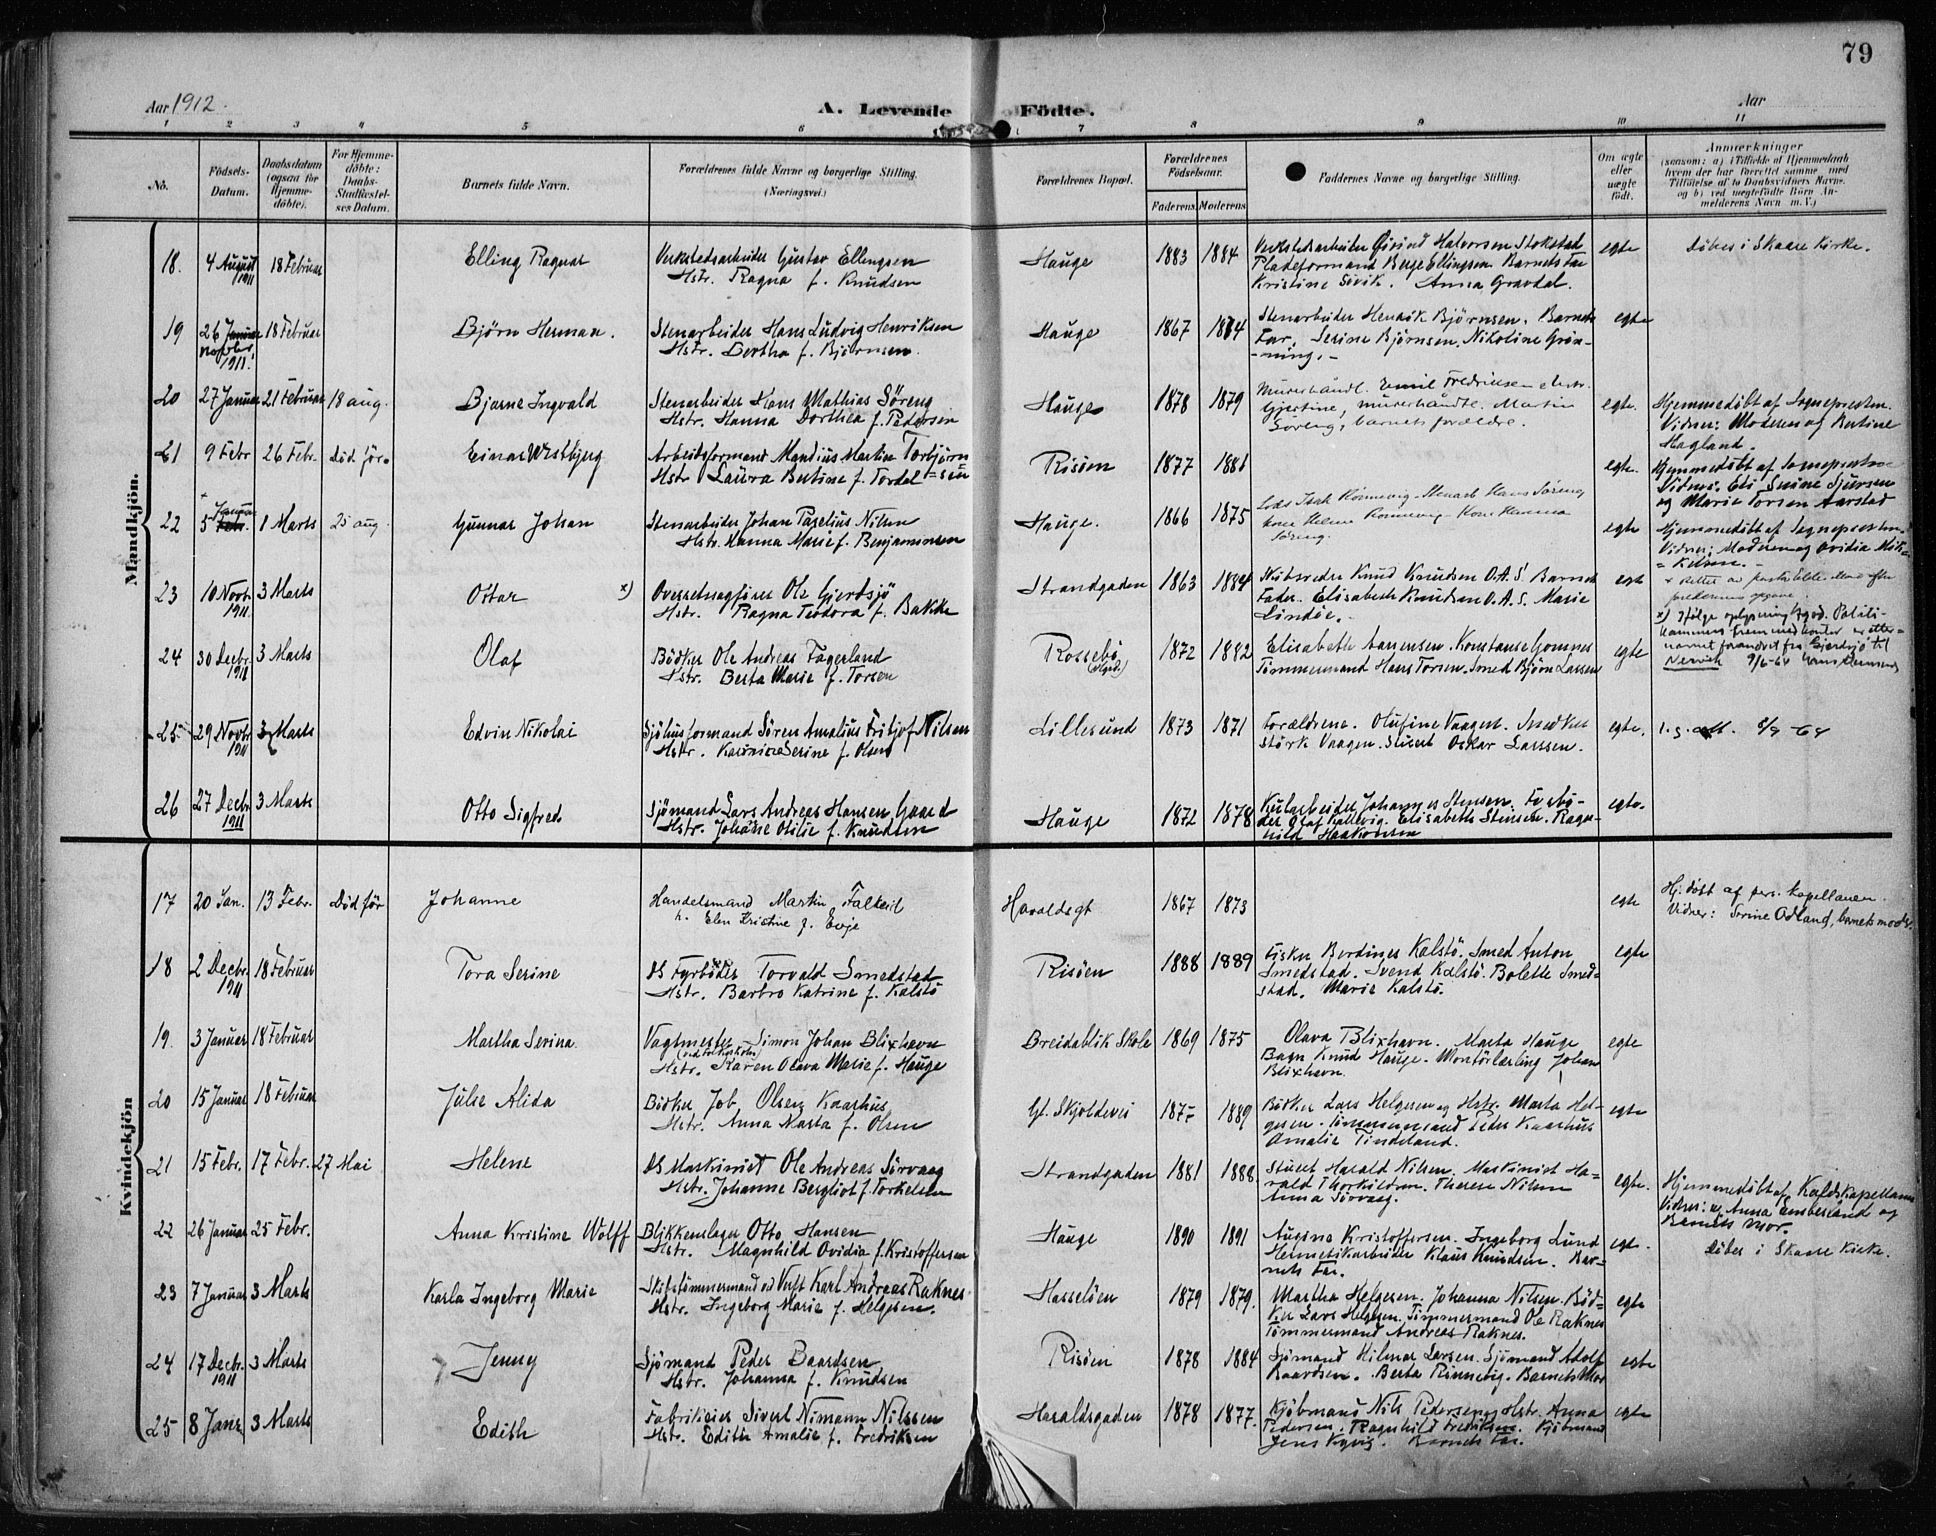 79
Aar 1912.
A. Levende Födte.
Aar
1 2 3 4 5 6 7 8 9 10 11
No.
Födsels-Datum.
Daabsdatum (ogsaa for Hjemme-döbte).
For Hjemme-döbte: Daabs-Stadfæstel-ses Datum.
Barnets fulde Navn.
Forældrenes fulde Navne og borgerlige Stilling. (Næringsvei.)
Forældrenes Bopæl.
Forældrenes Födselsaar.
Faderens. Moderens.
Faddernes Navne og borgerlige Stilling.
Om ægte eller uægte födt.
Anmærkninger
(saasom: a) i Tilfælde af Hjemmedaab
hvem der har forrettet samme med
Tilföielse af to Daabsvidners Navne.
og b) ved uægtefödte Börn An-
melderens Navn m. V.)
Mandkjön.
18. 4 August 1911 18 Februar Elling Ragnar
Verkstedsarbeider Gustav Ellingsen
Hstr. Ragna f. Knudsen
Hauge 1883 1884
Verkstedsarbeider Øivind Halvorsen Stokstad
Pladeformand Berge Ellingsen. Barnets Far
Kristine Sivik. Anna Gravdal.
egte Döbes i Skaare Kirke.
19 26 Januar Novbr. 1911. 18 Februar Bjørn Herman.
Stenarbeider Hans Ludvig Henriksen
Hstr. Bertha f. Bjørnsen.
Hauge 1867 1874
Stenarbeider Henrik Bjørnsen. Barnets
Far. Serine Bjørnsen. Nikoline Grøn-
-ning.-
egte
20 27 Januar 21 Februar 18 aug. Bjarne Ingvald
Stenarbeider Hans Mathias Söreng
Hstr. Hanna Dorthea f. Pedersen
Hauge 1878 1879
Murerhåndl. Emil Fredriksen Hstr.
Gjertine, murerhåndl. Martin
Söreng, barnets forældre.
egte. Hjemmedöbt af Sogneprästen.
Vidner: Moderen og Bertine
Hagland.
21 9 Febr 26 Febr. Död för. Einar Westbjerg
Arbeidsformand Mandius Martin Torbjørn
Hstr Laura Bertine f. Tordal =sen
Risöen 1877 1881
egte. Hjemmedöbt af Sogneprästen
Vidnes: Eli Serine Sjursen
og Marie Torsen Aarstad
22 5 Januar Febr. 1 Marts 25 aug. Gunnar Johan
Stenarbeider Johan Paselius Nilsen
Hstr. Hanna Marie f. Benjaminsen
Hauge. 1866 1875
Lods Isak Rønnevig - Stenarb Hans Söreng
kone Helene Rønnevig - Kone Hanna
Söreng.
egte Hjemmedöbt af Sogneprästen
Vidner: Moderen og Ovidia Mik=
= Kelsen. -
23 10 Novb. 1911. 3 Marts Ottar x)
Overretssagfører Ole Gjerdsjö
Hstr. Ragna Teodora f. Bakke
Strandgaden 1863 1884
Skibsreder Knud Knudsen O.A.S. Barnets
Fader. Elisabeth Knudsen O.A.S. Marie
Lindøe.-
egte
x) Ifölge oplysning
navnet forandret fra Gjerdsjö til
Nervik 9/6-64
24 30 Decbr. 1911 3 Marts Olaf
Bödker Ole Andreas Fagerland
Hstr. Berta Marie f. Torsen
Rossebö 1872 1882
Elisabeth Aanensen. Konstanse Gomnes
Tömmermand Hans Torsen. Smed Björn Larsen
egte
25 29 Novbr 1911 3 Marts Edvin Nikolai
Sjöhusformand Sören Amalius Fritjof Nilsen
Hstr. Karinine Serine f. Olsen
Lillesund 1873 1871
Forældrene. Olufine Vaagen. Smed Ker
störk Vaagen. Stuert Oskar Larssen.
egte. l.g. att. 8/9 -64
26 27 Decbr 1911 3 Marts Otto Sigfred
Sjömand Lars Andreas Hansen Gaard
Hstr. Johanne Otilie f. Knudsen
Hauge 1872 1878
Kularbeider Johannes Stensen. Fyrbö-
der Olaf Kallevig. Elisabeth Stensen. Ragn-
hild Haakonsen
egte.
Kvindekjön
17 20 Jan. 13 Febr. Död för Johanne
Handelsmand Martin Falkeid
h. Elen Kristine f. Eeje
Haraldsgt 1867 1873
egte Hj.döbt af pers. kapellanen.
Vidner: Serine Odland, barnets moder.
18 2 Decbr. 1911 18 Februar Tora Serine
DS Fyrböder Torvald Smedstad
Hstr. Barbro Katrine f. Kalstö
Risöen 1888 1889
Fisker Berdines Kalstö. Smed Anton
Smedstad. Svend Kalstö. Bolette Smed-
stad. Marie Kalstö.
egte
19. 3 Januar 18 Februar Martha Serina.
Vagtmester Simon Johan Blixhavn
(ved folkeskolen)
Hstr. Karen Olava Marie f. Hauge
Breidablik Skole 1869 1875
Olava Blixhavn. Marta Hauge
Bagn Knud Hauge. Montörlærling Johan
Blixhavn.
egte
20 15 Januar 18 Februar Julie Alida
Bödker Job. Olsen Kaarhus
Hstr. Anna Marta f. Olsen
Gl. Skjoldevei 187- 1889
Bödker Lars Helgesen og Hstr. Marta Hel-
gesen. Tömmermand Peder Kaarhus
Amalie Tindeland.
egte
21 15 Febr. 17 Febr. 27 Mai Helene
DS Maskinist Ole Andreas Sörvaag
Hstr. Johanne Bergliot f. Torkelsen
Strandgaden 1881 1888.
Stuert Harald Nilsen. Maskinist Ha-
rald Thorkildsen. Therese Nilsen
Anna Sörvaag.
egte. Hjemmedöbt af Kaldskapellanen
Vidner: Anna Emberland og
Barnets Mor.
22 26 Januar 25 Febr. Anna Kristine Wolff
Blikkenslager Otto Hansen
Hstr. Magnhild Ovidia f. Kristoffersen
Hauge 1890 1891
Kristoffersen. Ingeborg Lund
Hermetikarbeider Klaus Knudsen. Bar-
nets Far.
egte. Döbes i Skaare Kirke.
23 7 Januar 3 Marts Karla Ingeborg Marie
Skibstömmermand vd Verft Karl Andreas Raknes
Hstr. Ingeborg Marie f. Helgesen.
Hasselöen 1879 1879.
Martha Helgesen. Johanna Nilsen. Böd-
Ker Lars Helgesen. Tömmermand Ole Raknes
Tömmermand Andreas Raknes.
egte
24 17 Decbr. 1911 3 Marts Jenny
Sjömand Peder Baardsen
Hstr. Johanna f. Knudsen
Risöen 1878 1884
Sjömand Hilmar Larsen. Sjömand Adolf
Baardsen. Berta Rinnevig. Barnets Mor
egte
25 8 Janr 3 Marts Edith
Fabrikeier Sivert Nimann Nilssen
Hstr. Edith Amalie f. Fredriksen
Haraldsgaden 1878 1877.
Kjöbmand Nils Pedersen og Hstr. Anna
Pedersen. Ragnhild Fredriksen. Kjöbmand
Jens Vigvig. Barnets Far.
egte